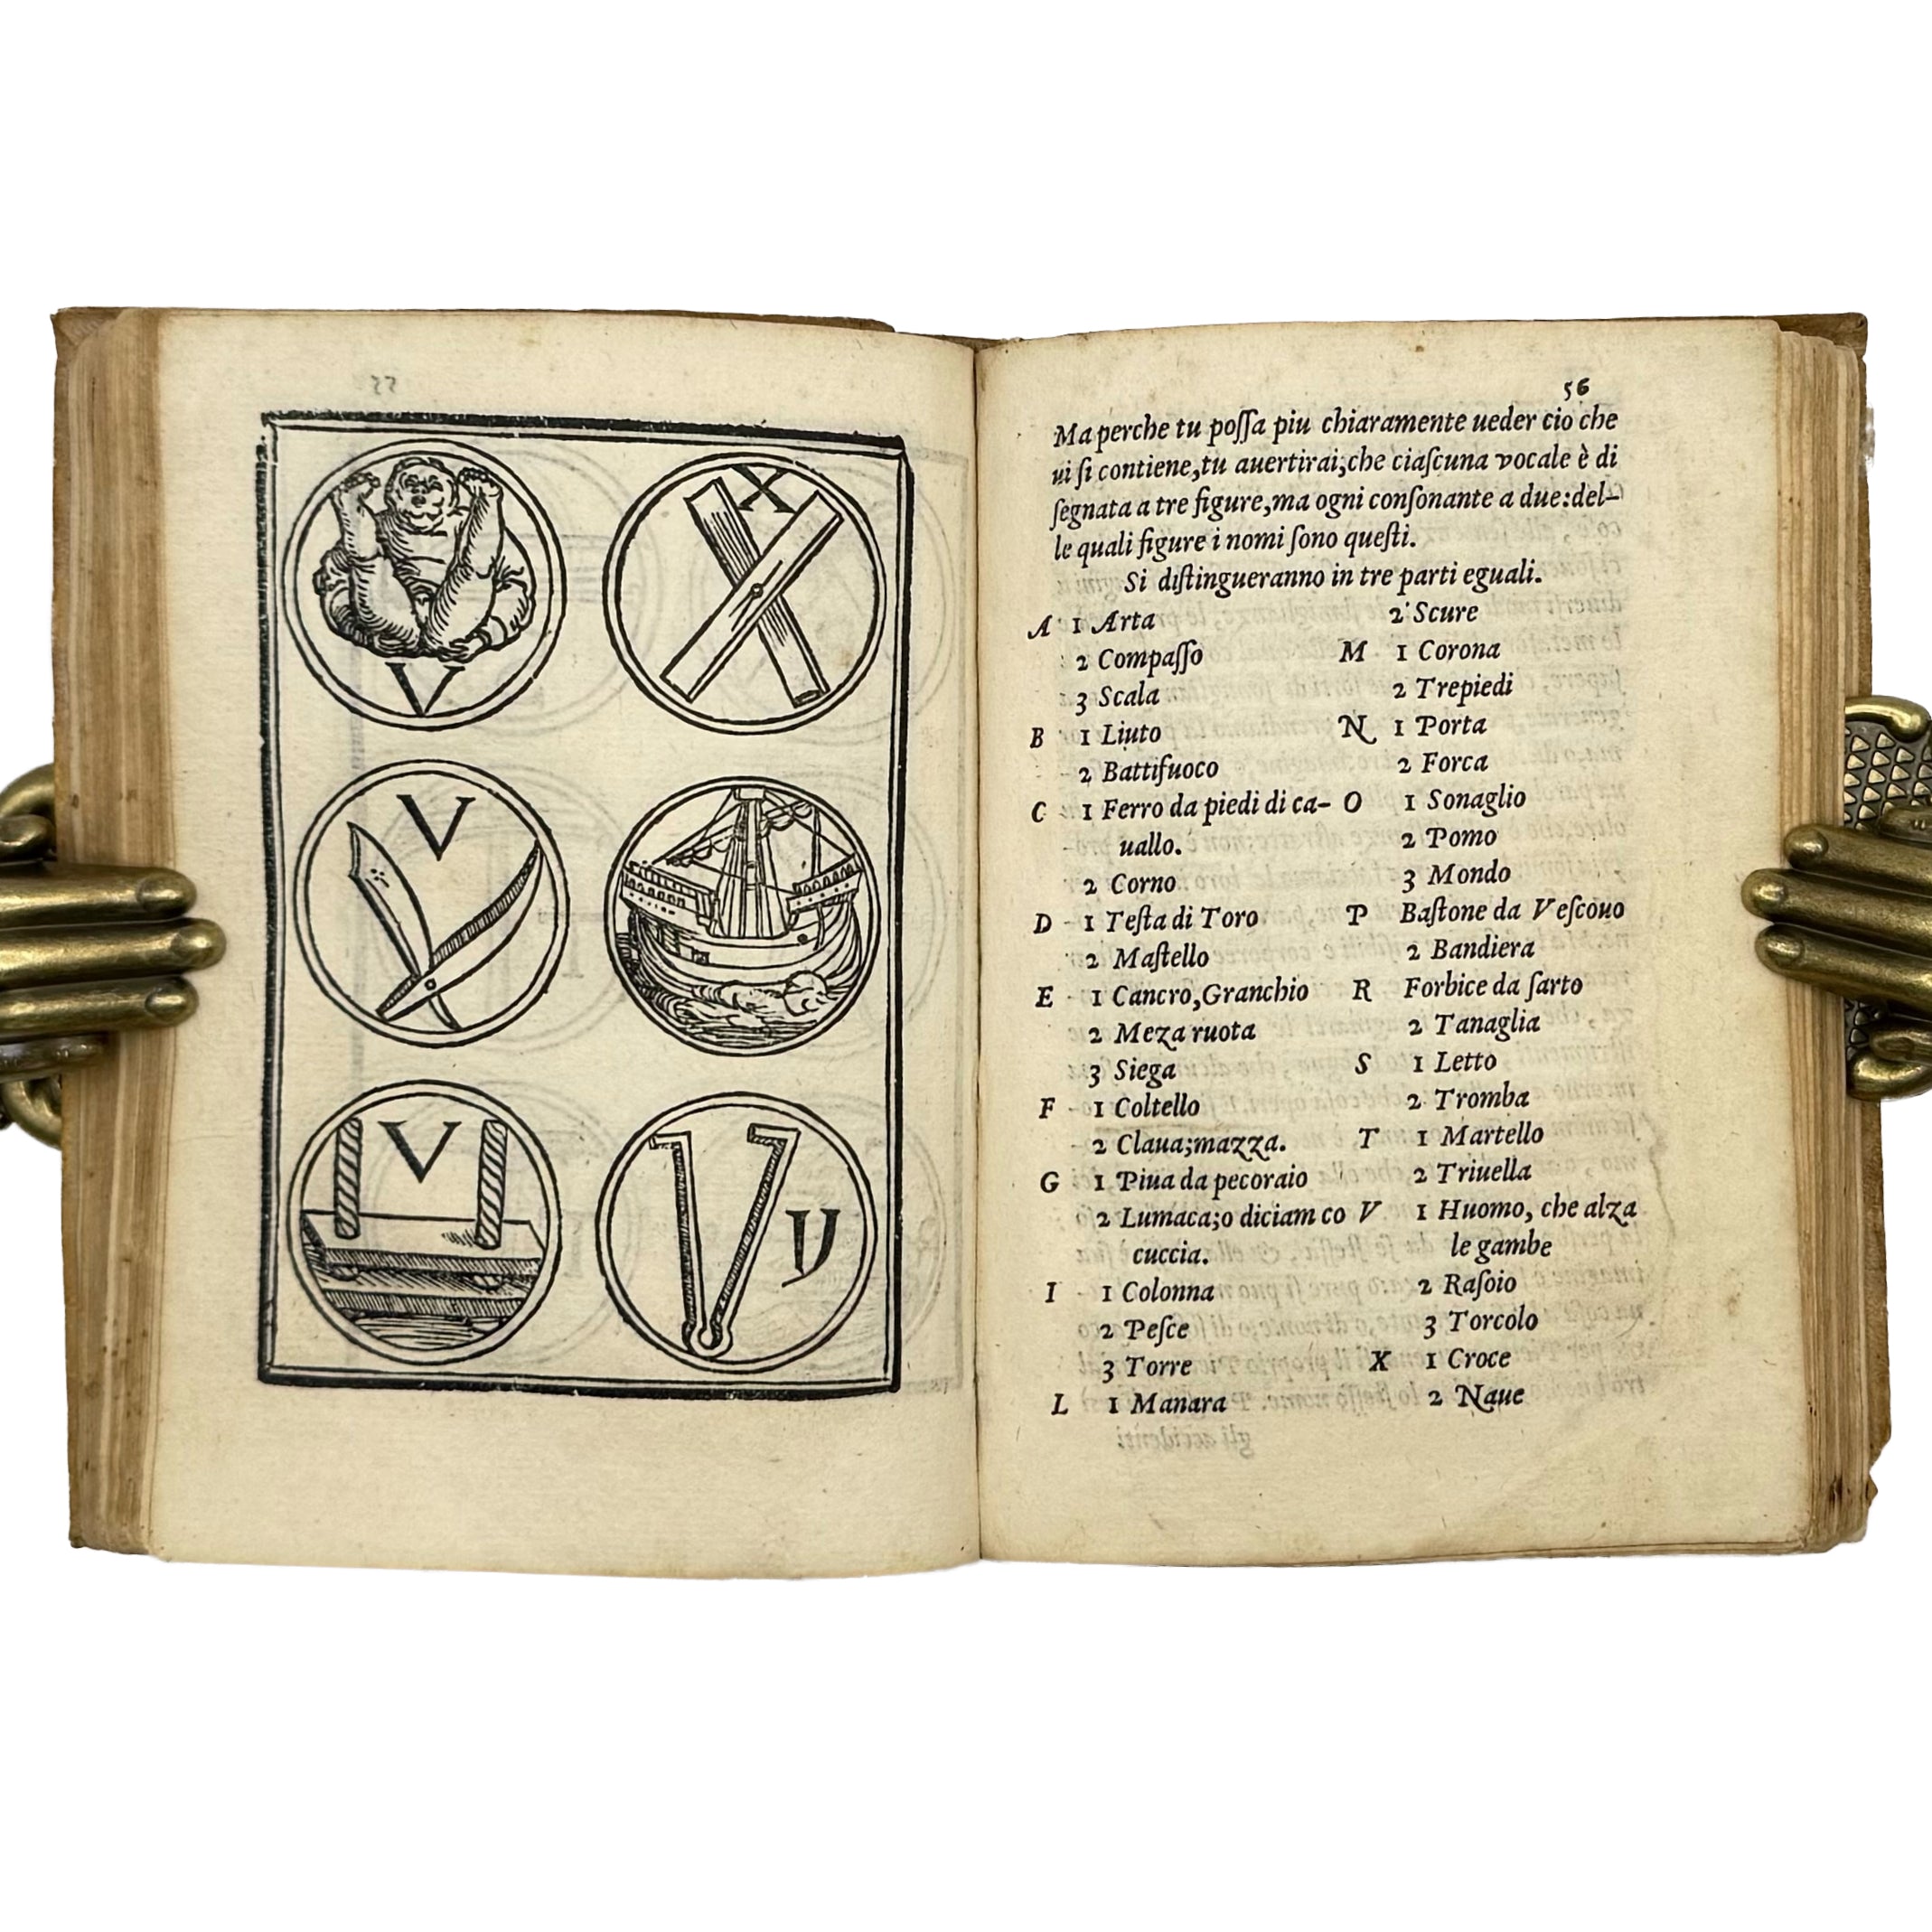 V
X
V
V
y
56
Ma perche tu poſſa piu chiaramente ueder cio che
ui ſi contiene,tu auertirai;che ciaſcuna vocale è di
ſegnata a tre figure,ma ogni conſonante a due:del-
le quali figure i nomi ſono queſti.
Si diſtingueranno in tre parti eguali.
A 1 Arta
2 Compaſſo
3 Scala
B 1 Liuto
2 Battifuoco
C 1 Ferro da piedi di ca-
uallo.
2 Corno
D 1 Teſta di Toro
2 Maſtello
E 1 Cancro,Granchio
2 Meza ruota
3 Siega
F 1 Coltello
2 Claua;mazza.
G 1 Piua da pecoraio
2 Lumaca;o diciam co
cuccia.
I 1 Colonna
2 Peſce
3 Torre
L 1 Manara
2 Scure
M 1 Corona
2 Trepiedi
N 1 Porta
2 Forca
O 1 Sonaglio
2 Pomo
3 Mondo
P Baſtone da Veſcouo
2 Bandiera
R Forbice da ſarto
2 Tanaglia
S 1 Letto
2 Tromba
T 1 Martello
2 Triuella
V 1 Huomo, che alza
le gambe
2 Raſoio
3 Torcolo
X 1 Croce
2 Naue